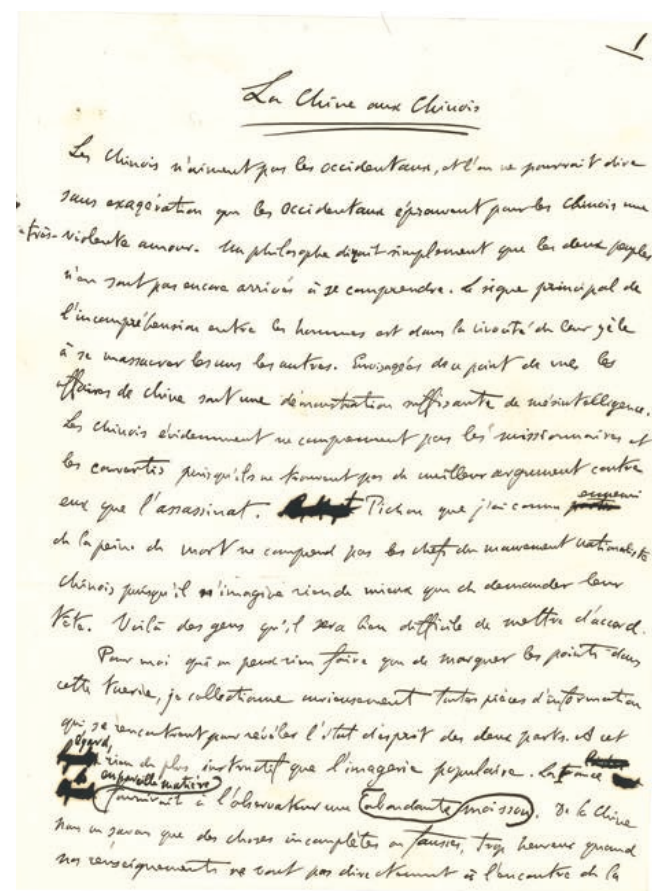 1
La Chine aux Chinois
Les Chinois n'aiment pas les occidentaux, et l'on ne pourrait dire
sans exagération que les occidentaux éprouvent pour les chinois une
-très- violente amour. Un philosophe dirait simplement que les deux peuples
n'en sont pas encore arrivés à se comprendre. Le signe principal de
l'incompréhension entre les hommes est dans la vivacité de leur zèle
à se massacrer les uns les autres. Envisagées de ce point de vue les
affaires de Chine sont une démonstration suffisante de mésintelligence.
Les chinois évidemment ne comprennent pas les missionnaires et
les convertis puisqu'ils ne trouvent pas de meilleur argument contre
ennemi
eux que l'assassinat. Pichon que j'ai connu
de la peine de mort ne comprend pas les chefs du mouvement nationaliste
chinois puisqu'il n'imagine rien de mieux que de demander leur
tête. Voilà des gens qu'il sera bien difficile de mettre d'accord.
Pour moi qui ne peux rien faire que de marquer les points dans
cette tuerie, je collectionne curieusement toutes pièces d'information
qui se rencontrent pour révéler l'état d'esprit des deux parts. A cet
égard,
rien de plus instructif que l'imagerie populaise. La France
en pareille matière
fournirait à l'observateur une abondante moisson. De la Chine
nous ne savons que des choses incomplètes ou fausses, trop heureux quand
nos renseignements ne vont pas directement à l'encontre de la